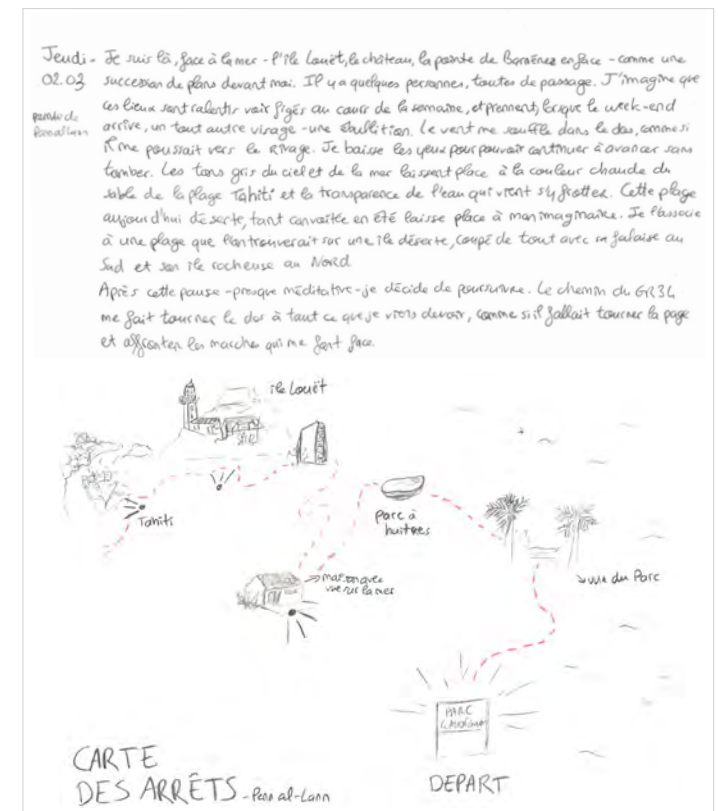 Jeudi - Je suis là, face à la mer - l'île Louët, le château, la pointe de Barnénez en face - comme une
02.03 succession de plans devant moi. Il y a quelques personnes, toutes de passage. J'imagine que
pointe de Penn al Lann
ces lieux sont ralentis voir figés au cours de la semaine, et prennent, lorsque le week-end
arrive, un tout autre visage - une ébullition. Le vent me souffle dans le dos, comme si
il me poussait vers le rivage. Je baisse les yeux pour pouvoir continuer à avancer sans
tomber. Les tons gris du ciel et de la mer laissent place à la couleur chaude du
sable de la plage Tahiti et la transparence de l'eau qui vient s'y frotter. Cette plage
aujourd'hui déserte, tant convoitée en été laisse place à mon imaginaire. Je l'associe
à une plage que l'on trouverait sur une île déserte, coupé de tout avec sa falaise au
Sud et son île rocheuse au Nord
Après cette pause - presque méditative - je décide de poursuivre. Le chemin du GR34
me fait tourner le dos à tout ce que je viens de voir, comme si il fallait tourner la page
et affronter les marches qui me font face.
île Louët
Tahiti
parc à
huîtres
maison avec
vue sur la mer
vue du Parc
PARC
CARTE
DES ARRÊTS - Penn al-Lann
DEPART